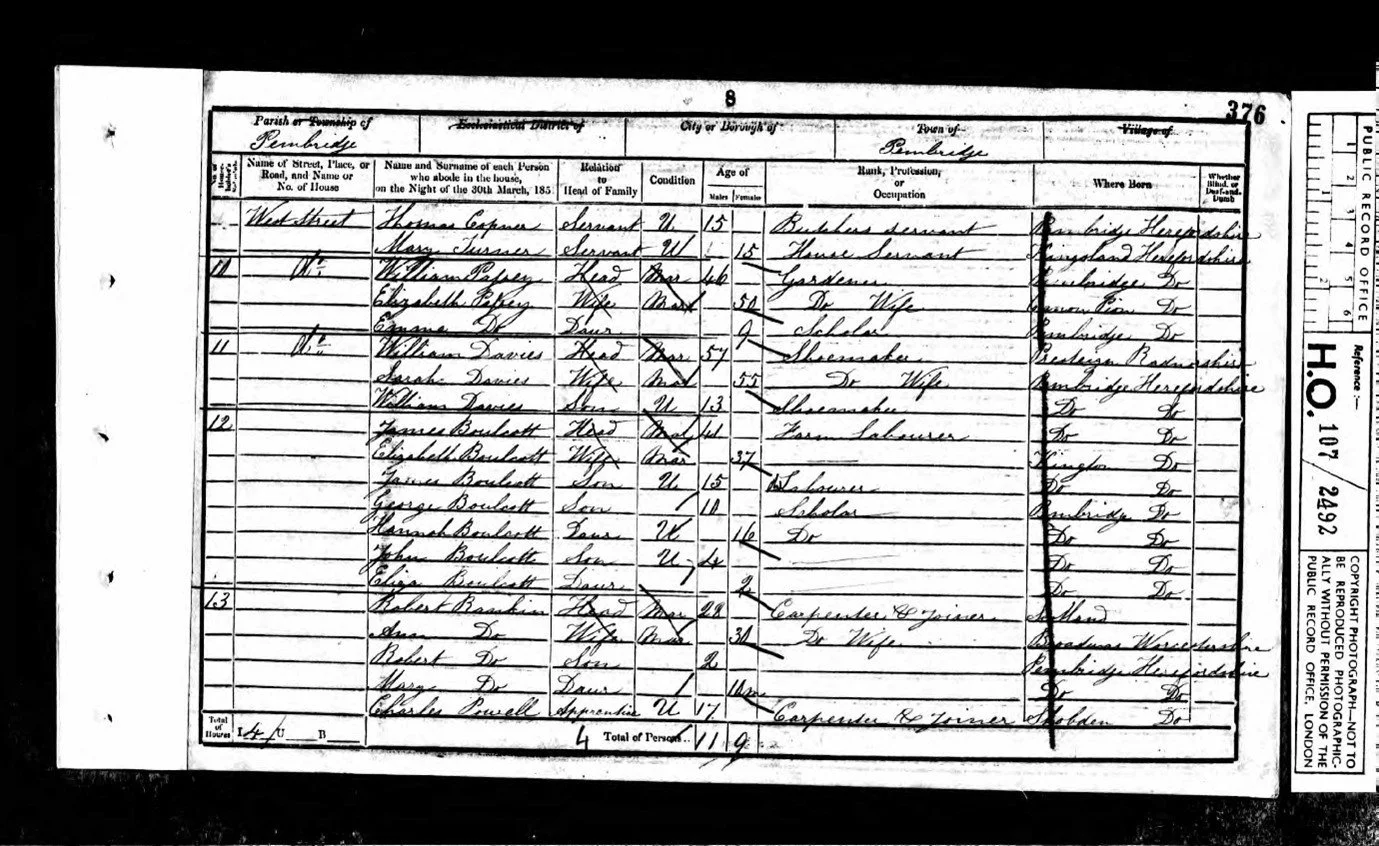 8
376
Parish or Township of Ecclesiastical District of City or Borough of Town of Village of
Pembridge Pembridge
No. of House- holder's Schedule Name of Street, Place, or Road, and Name or No. of House Name and Surname of each Person who abode in the house, on the Night of the 30th March, 185 Relation to Head of Family Condition Age of Males Females Rank, Profession, or Occupation Where Born Whether Blind, or Deaf-and-Dumb
West Street Thomas Capner Servant U 15 Butchers Servant Pembridge Herefordshire
Mary Turner Servant U 15 House Servant Kingsland Herefordshire
10 Do William Head Mar 46 Gardener Pembridge Do
Elizabeth Wife Mar 50 Do Wife Canon Pion Do
Emma Do Daur 9 Scholar Pembridge Do
11 Do William Davies Head Mar 57 Shoemaker Presteign Radnorshire
Sarah Davies Wife Mar 55 Do Wife Pembridge Herefordshire
William Davies Son U 13 Shoemaker Do Do
12 James Boulcott Head Mar 41 Farm Labourer Do Do
Elizabeth Boulcott Wife Mar 37 Kington Do
James Boulcott Son U 15 Labourer Do Do
George Boulcott Son 10 Scholar Pembridge Do
Hannah Boulcott Daur U 16 Do Do Do
John Boulcott Son U 4 Do Do
Eliza Boulcott Daur 2 Do Do
13 Robert Bankin Head Mar 28 Carpenter & Joiner Scotland
Ann Do Wife Mar 30 Do Wife Broadwas Worcestershire
Robert Do Son 2 Pembridge Herefordshire
Mary Do Daur 10m Do Do
Charles Powell Apprentice U 17 Carpenter & Joiner Shobden Do
Total of Houses I 4 U B 4 Total of Persons.. 11 9
PUBLIC RECORD OFFICE
1 2 3 4 5 6
1 2
Reference :-
H.O. 107/2492
COPYRIGHT PHOTOGRAPH—NOT TO
BE REPRODUCED PHOTOGRAPHIC-
ALLY WITHOUT PERMISSION OF THE
PUBLIC RECORD OFFICE, LONDON